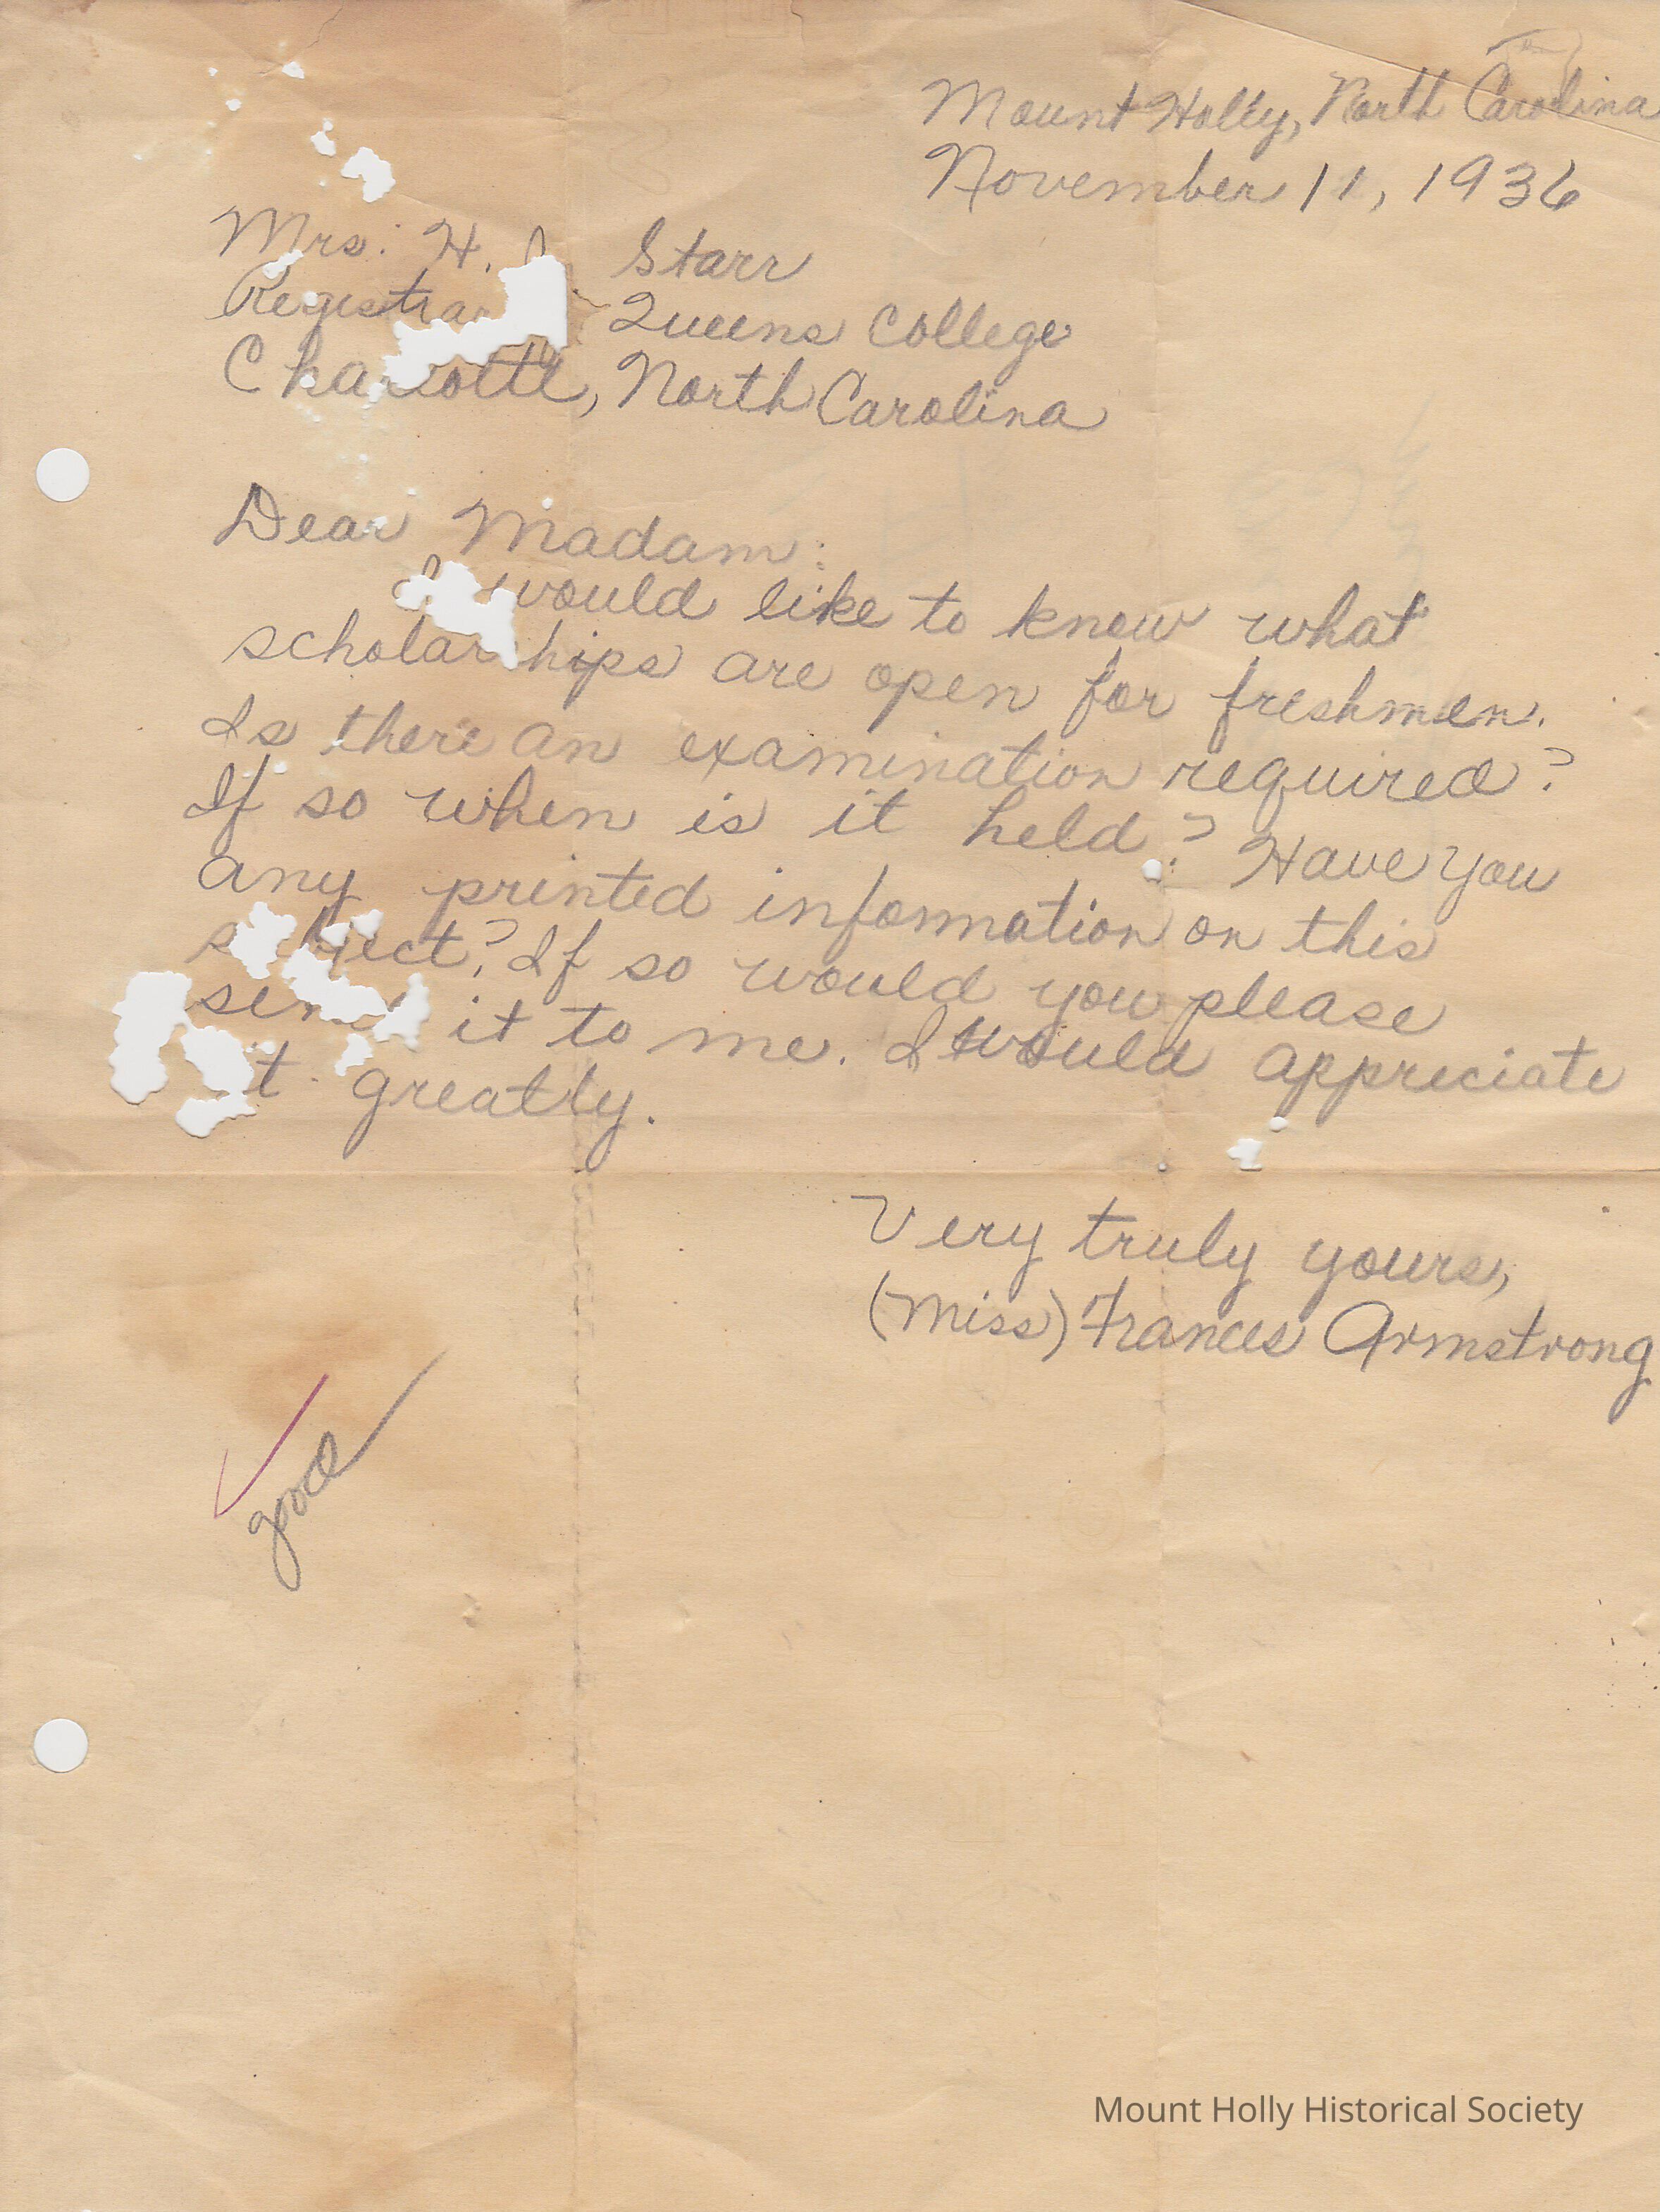 Mount Holly, North Carolina
November 11, 1936
Mrs. H. Starr
Registrar Queens College
Charlotte, North Carolina
Dear Madam:
I would like to know what
scholarships are open for freshmen.
Is there an examination required?
If so when is it held? Have you
any printed information on this
subject? If so would you please
send it to me. I would appreciate
it greatly.
Very truly yours,
(Miss) Frances Armstrong
good
Mount Holly Historical Society